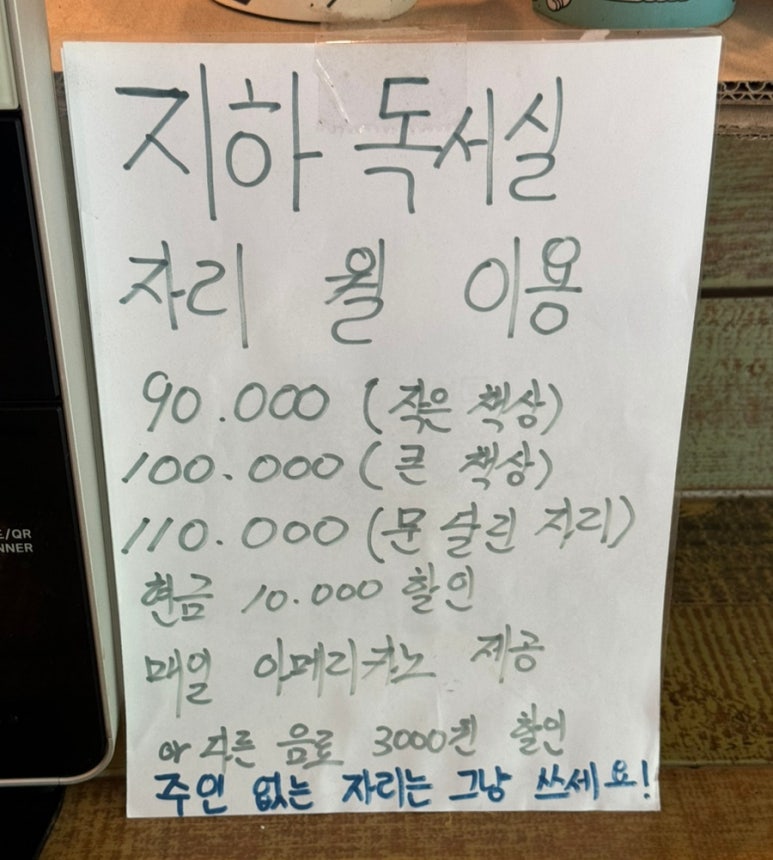 지하 독서실
자리 월 이용
90.000 (작은 책상)
100.000 (큰 책상)
110.000 (문 달린 자리)
현금 10.000 할인
매일 아메리카노 제공
or 다른 음료 3000원 할인
주인 없는 자리는 그냥 쓰세요!
E/QR
NNER